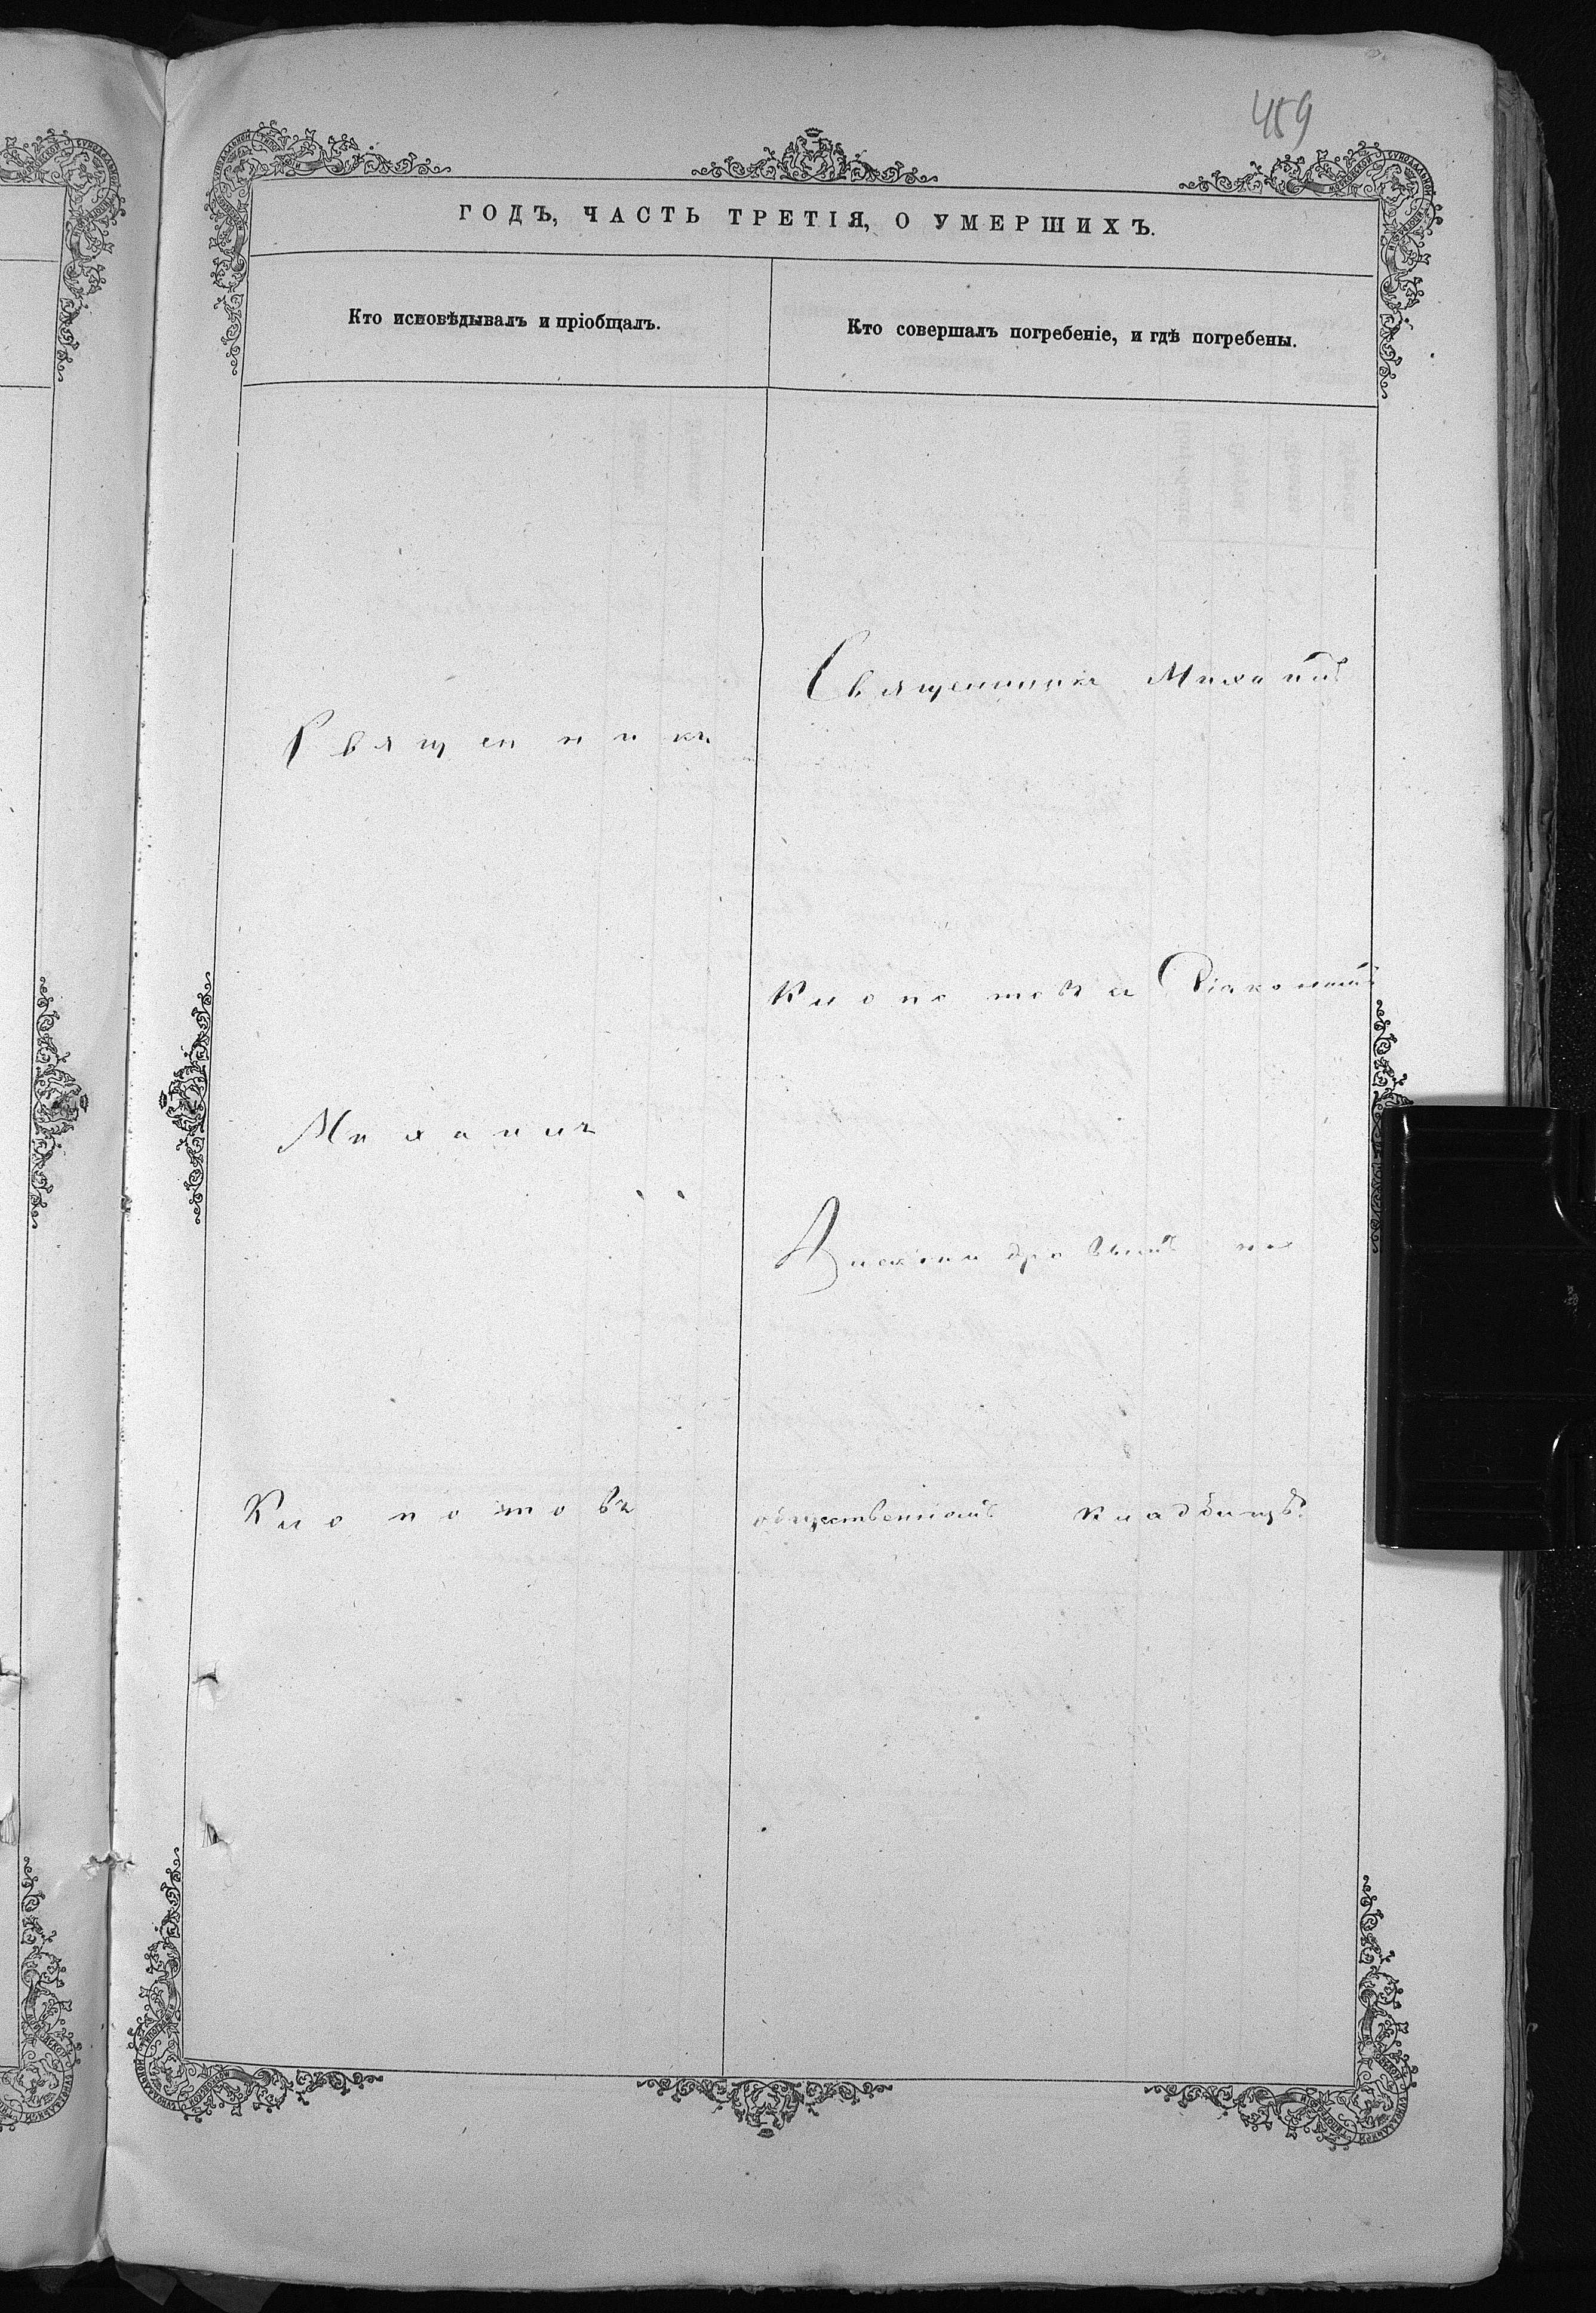 459
ГОДЪ, ЧАСТЬ ТРЕТІЯ, О УМЕРШИХЪ.
Кто исповѣдывалъ и пріобщалъ.
Священникъ
Михаилъ
Клопотовъ
Кто совершалъ погребеніе, и гдѣ погребены.
Священникъ Михаилъ
Клопотовъ съ
Александровымъ на
общественномъ кладбищѣ.